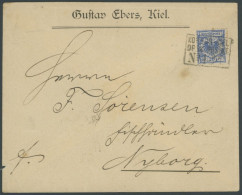 Gustav Ebers, Kiel.
Herrn
F. Sörensen
Fischhändler
Nyborg.